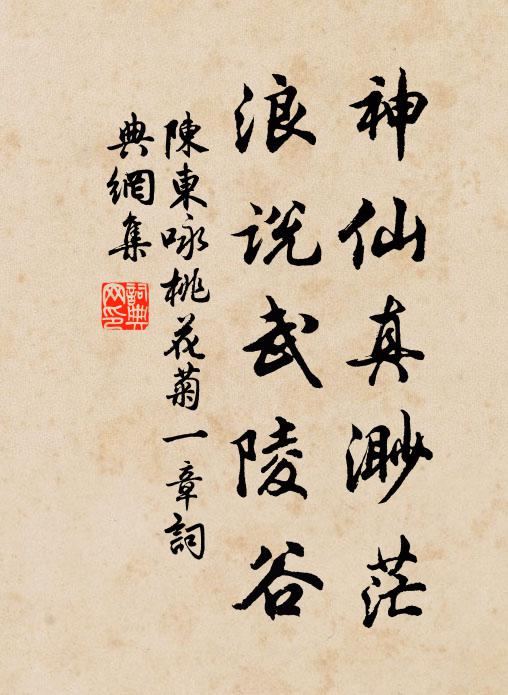 神仙真渺茫
浪说武陵谷
陳東咏桃花菊一章詞
典網集
詞典
网印